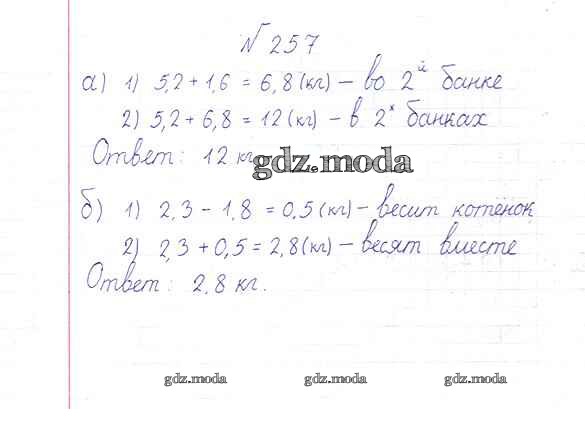 № 257
а) 1) 5,2 + 1,6 = 6,8 (кг) – во 2й банке
2) 5,2 + 6,8 = 12 (кг) – в 2х банках
Ответ: 12 кг
gdz.moda
б) 1) 2,3 - 1,8 = 0,5 (кг) – весит котёнок
2) 2,3 + 0,5 = 2,8 (кг) – весят вместе
Ответ: 2,8 кг.
gdz.moda gdz.moda gdz.moda